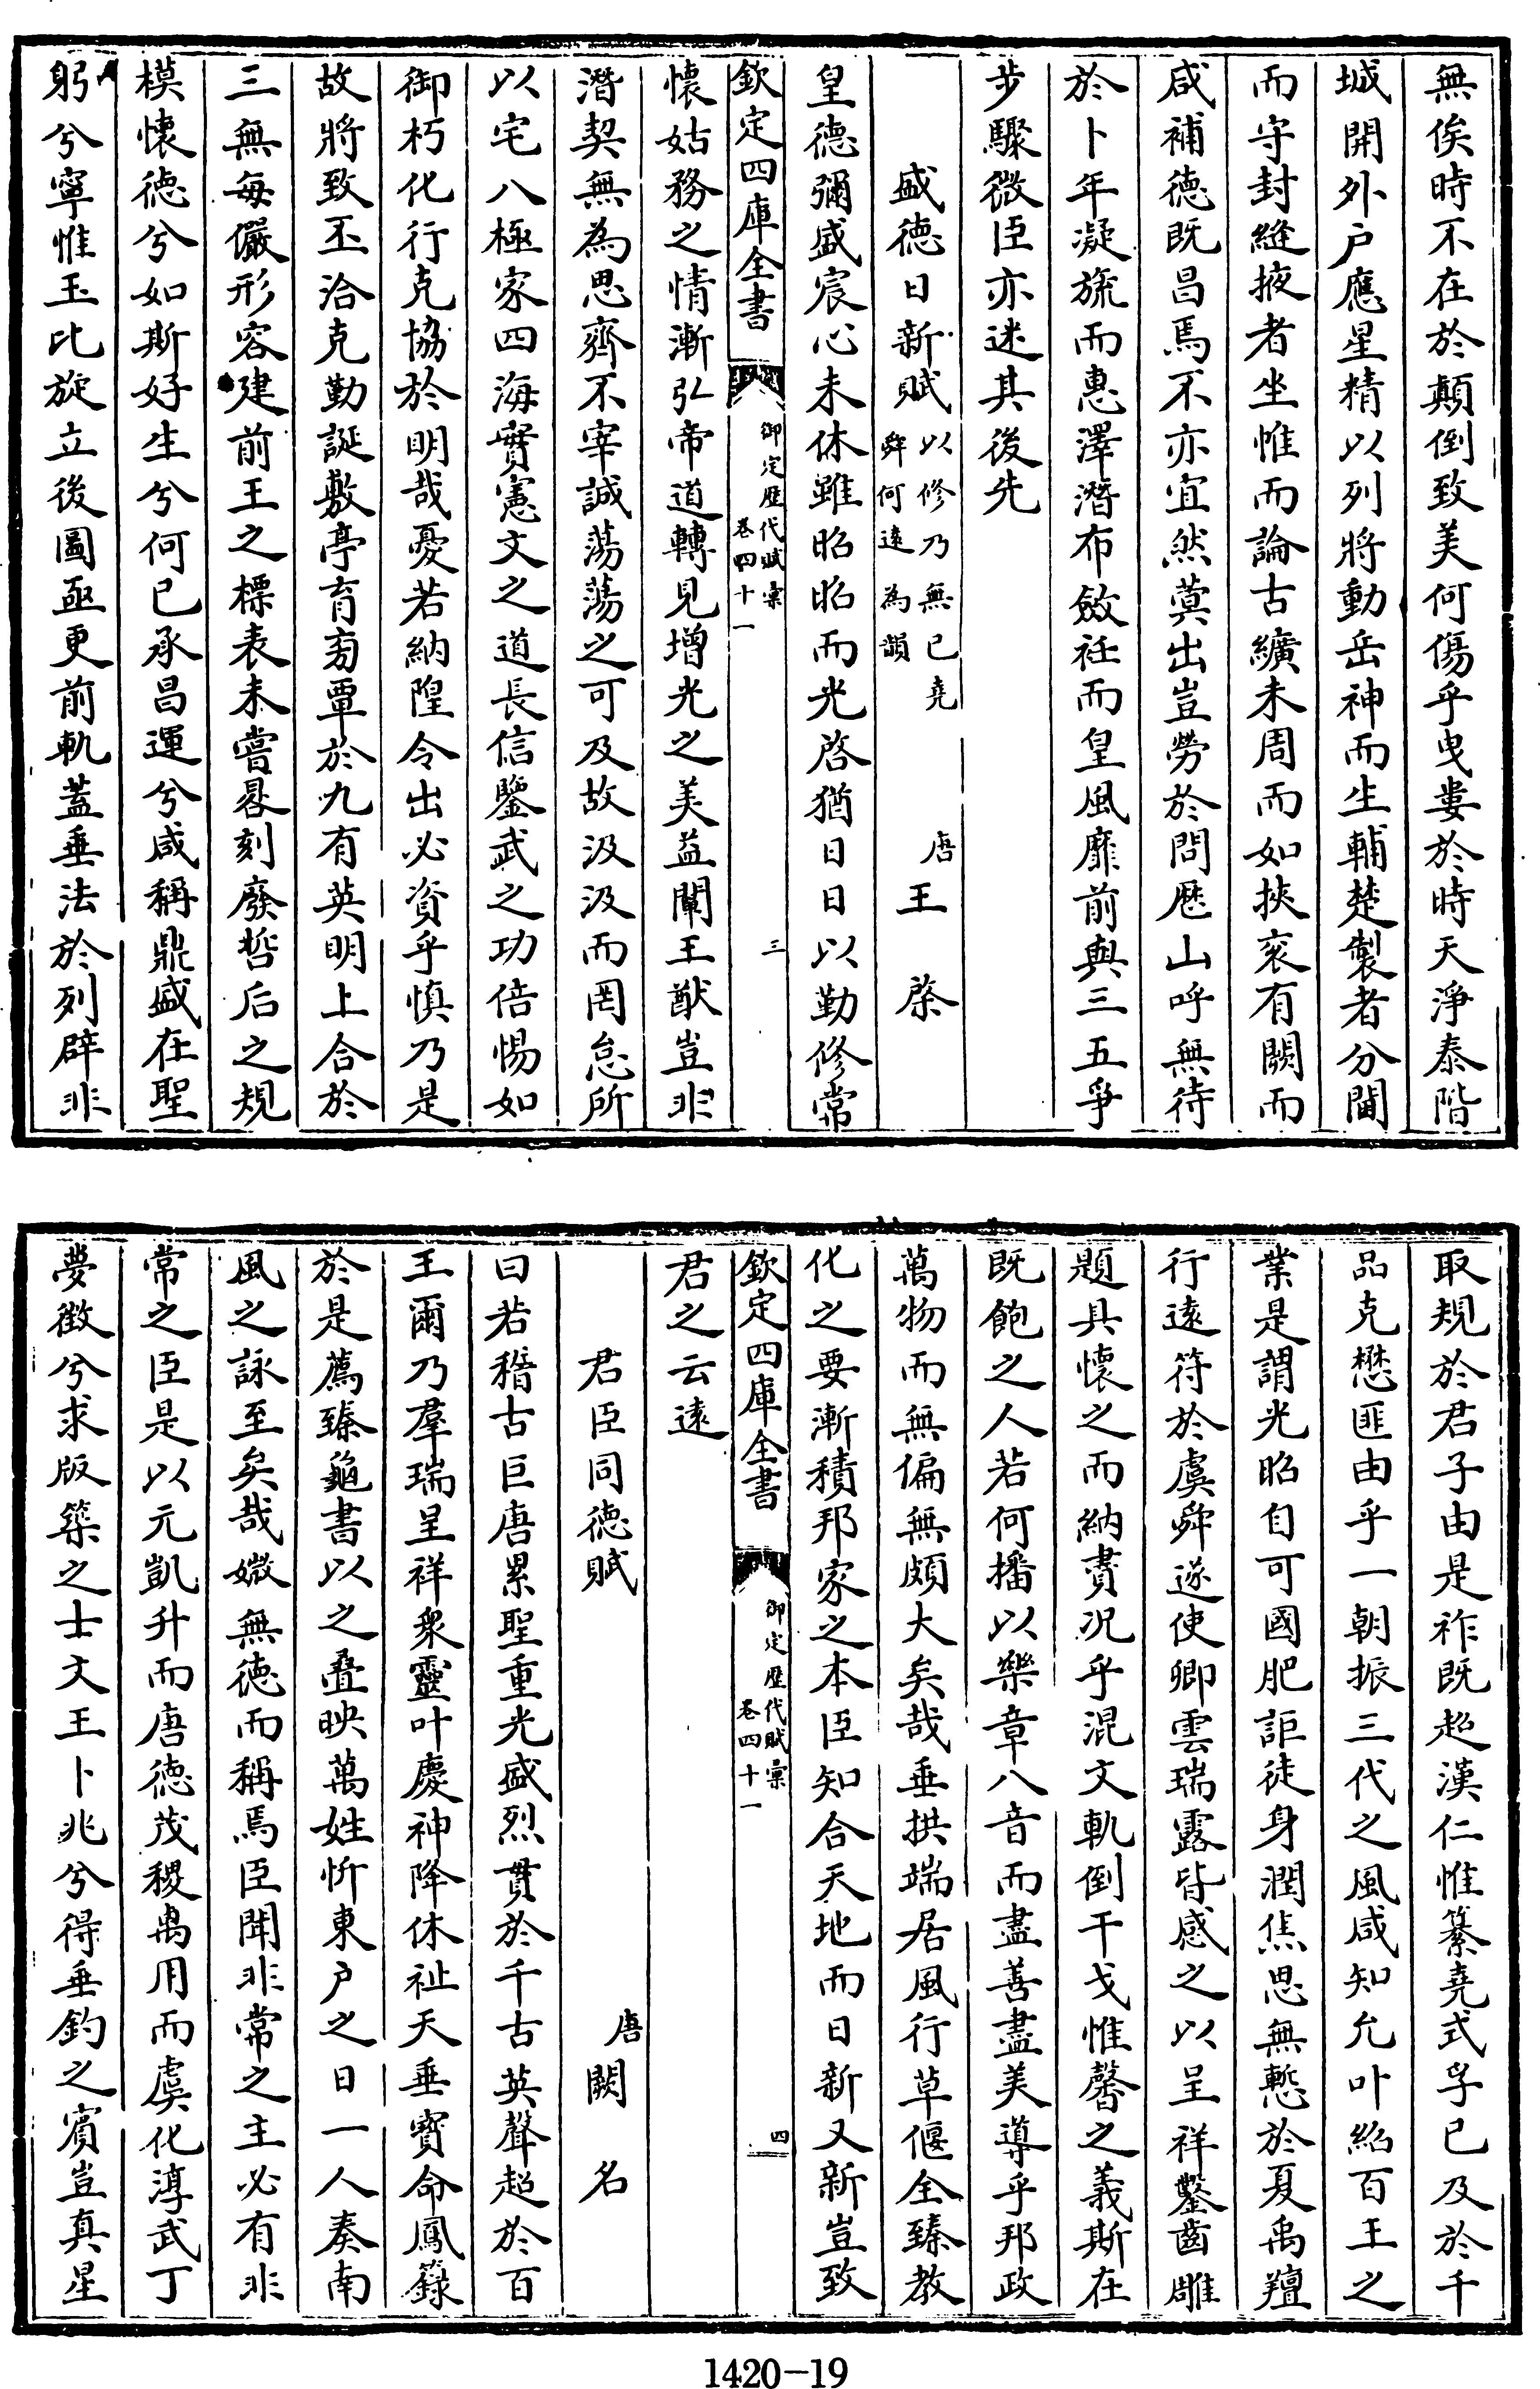 無俟時不在於顛倒致美何傷乎曳婁於時天淨泰階
城開外户應星精以列將動岳神而生輔楚製者分閫
而守封縫掖者坐惟而論古纊未周而如挾衮有闕而
咸補徳既昌焉不亦宜然蓂出豈勞於問厯山呼無待
於卜年凝旒而惠澤潛布斂衽而皇風靡前與三五爭
步驟微臣亦迷其後先
盛徳日新賦以修乃無已堯舜何遠為韻 唐王棨
皇徳彌盛宸心未休雖昭昭而光啓猶日日以勤修常
欽定四庫全書 御定歴代賦彙 卷四十一 三
懷姑務之情漸弘帝道轉見增光之美益闡王猷豈非
潛契無為思齊不宰誠蕩蕩之可及故汲汲而罔怠所
以宅八極家四海實憲文之道長信鑒武之功倍惕如
御朽化行克協於明哉憂若納隍令出必資乎慎乃是
故將致丕洽克勤誕敷亭育旁覃於九有英明上合於
三無每儼形容建前王之標表未嘗晷刻廢哲后之規
模懷徳兮如斯好生兮何已承昌運兮咸稱鼎盛在聖
躬兮寧惟玉比旋立後圖亟更前軌蓋垂法於列辟非
取規於君子由是祚既超漢仁惟纂堯式孚已及於千
品克懋匪由乎一朝振三代之風咸知允叶紹百王之
業是謂光昭自可國肥詎徒身潤焦思無慙於夏禹羶
行逺符於虞舜遂使卿雲瑞露皆感之以呈祥鑿齒雕
題具懷之而納賮况乎混文軌倒干戈惟馨之義斯在
既飽之人若何播以樂章八音而盡善盡美導乎邦政
萬物而無偏無頗大矣哉垂拱端居風行草偃全臻教
化之要漸積邦家之本臣知合天地而日新又新豈致
欽定四庫全書 御定歴代賦彙 卷四十一 四
君之云逺
君臣同徳賦 唐闕名
曰若稽古巨唐累聖重光盛烈貫於千古英聲超於百
王爾乃羣瑞呈祥衆靈叶慶神降休祉天垂寳命鳳籙
於是薦臻龜書以之叠映萬姓忻東户之日一人奏南
風之詠至矣哉媺無徳而稱焉臣聞非常之主必有非
常之臣是以元凱升而唐徳茂稷禹用而虞化淳武丁
夢徴兮求版築之士文王卜兆兮得垂釣之賓豈真星
1420-19